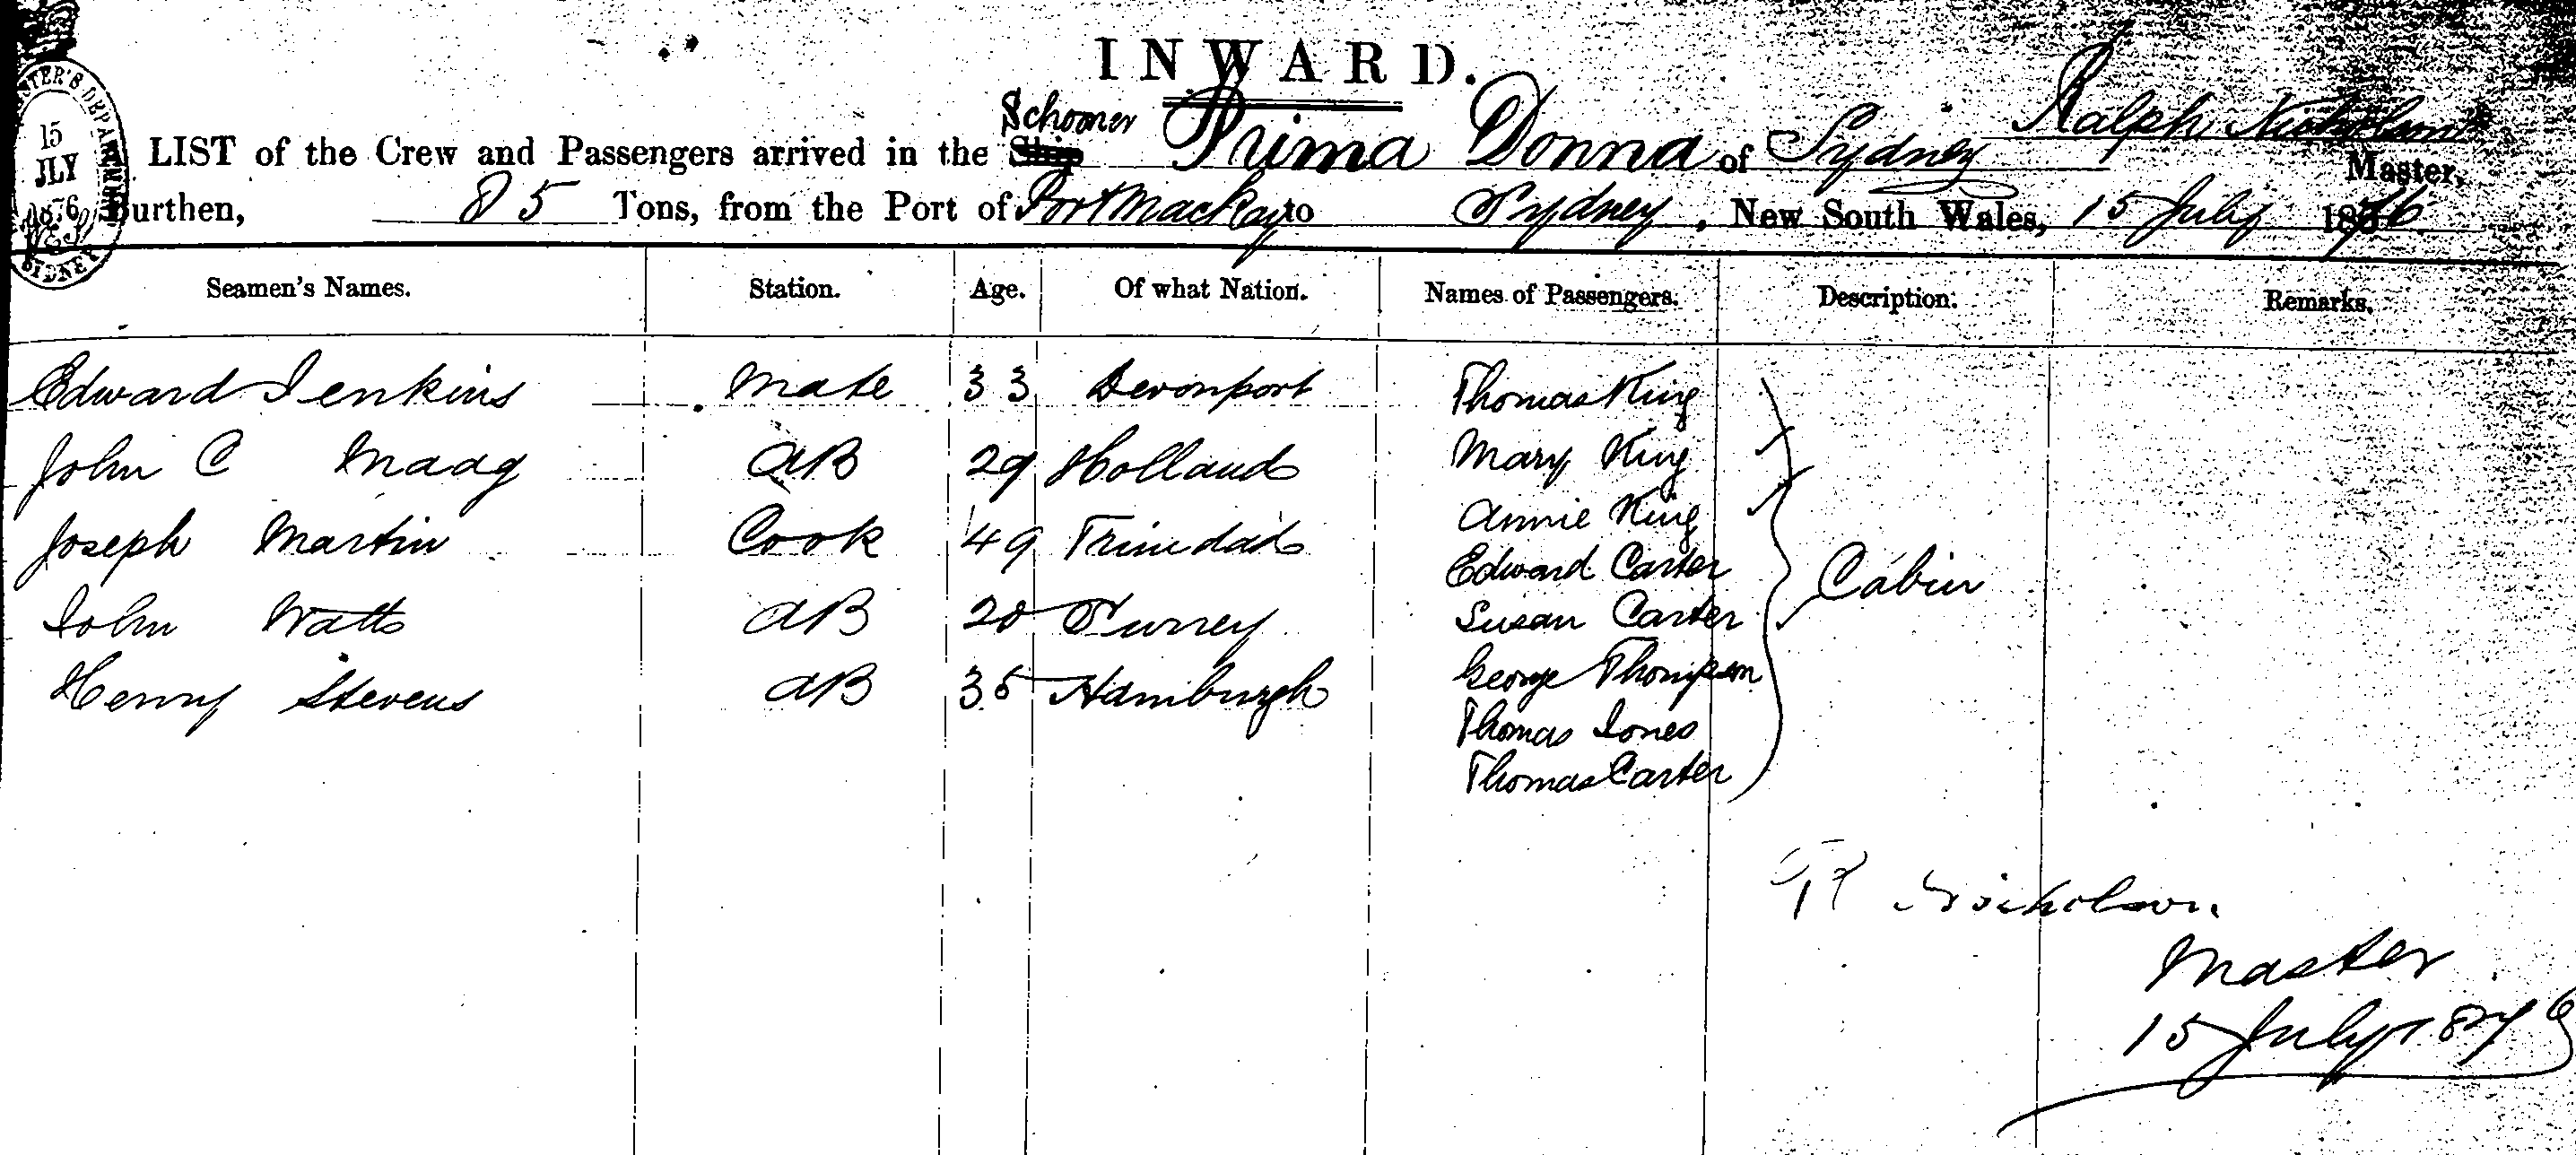 INWARD.
15
JLY
1876
SYDNEY
Schooner Ralph Nicholson
LIST of the Crew and Passengers arrived in the Ship Prima Donna of Sydney Master,
Burthen, 85 Tons, from the Port of Port Mackay to Sydney, New South Wales, 15 July 1876
Seamen's Names. Station. Age. Of what Nation. Names of Passengers. Description. Remarks.
Edward Jenkins Mate 33 Devonport Thomas King
John C Maag AB 29 Holland Mary King
Joseph Martin Cook 49 Trinidad Annie King
Edward Carter Cabin
John Watts AB 20 Surrey Susan Carter
Henry Stevens AB 35 Hamburgh George Thompson
Thomas Jones
Thomas Carter
R Nicholson
Master
15 July 1876